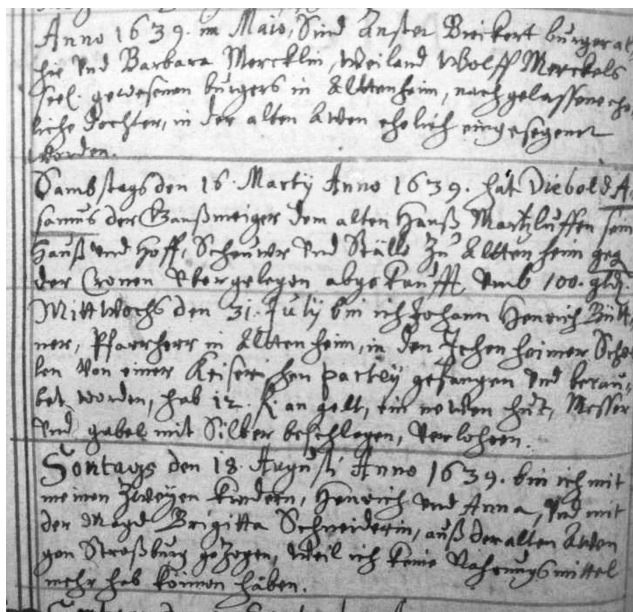 Anno 1639. im Maio, Sind Anster Bieckert burger al-
hie Vnd Barbara Mercklin, Weiland Wolff Merckels
seel. gewesenen burgers in Alttenheim, nachgelassene ehe-
liche dochter, in der alten Awen ehelich eingesegnet
worden.
Sambstags den 16. Martij Anno 1639. hat Diebold A
samus der Haußmeiger dem alten Hanß Martzluffen sein
Hauß Vnd Hoff, Schewr Vnd Ställe Zu Alttenheim geg
der Cronen Vbergelegen abgekaufft, Vmb 100. gld.
Mittwochs den 31. July bin ich Johann Henrich Bütt-
ner, Pfarrherr in Alttenheim, in den Ichenheimer
len Von einer Keiserischen partey gefangen Vnd berau-
bet worden, hab 12. an gelt, ein newen hut, Messer
Vnd gabel mit Silber beschlagen, Verlohren.
Sontags den 18. Augusti Anno 1639. bin ich mit
meinen Zweyen Kindern, Henrich Vnd Anna, Vnd mit
der Magd Brigitta Schneiderin, auß der alten Awen
gen Straßburg gezogen, weil ich keine Nahrungsmittel
mehr hab können haben.